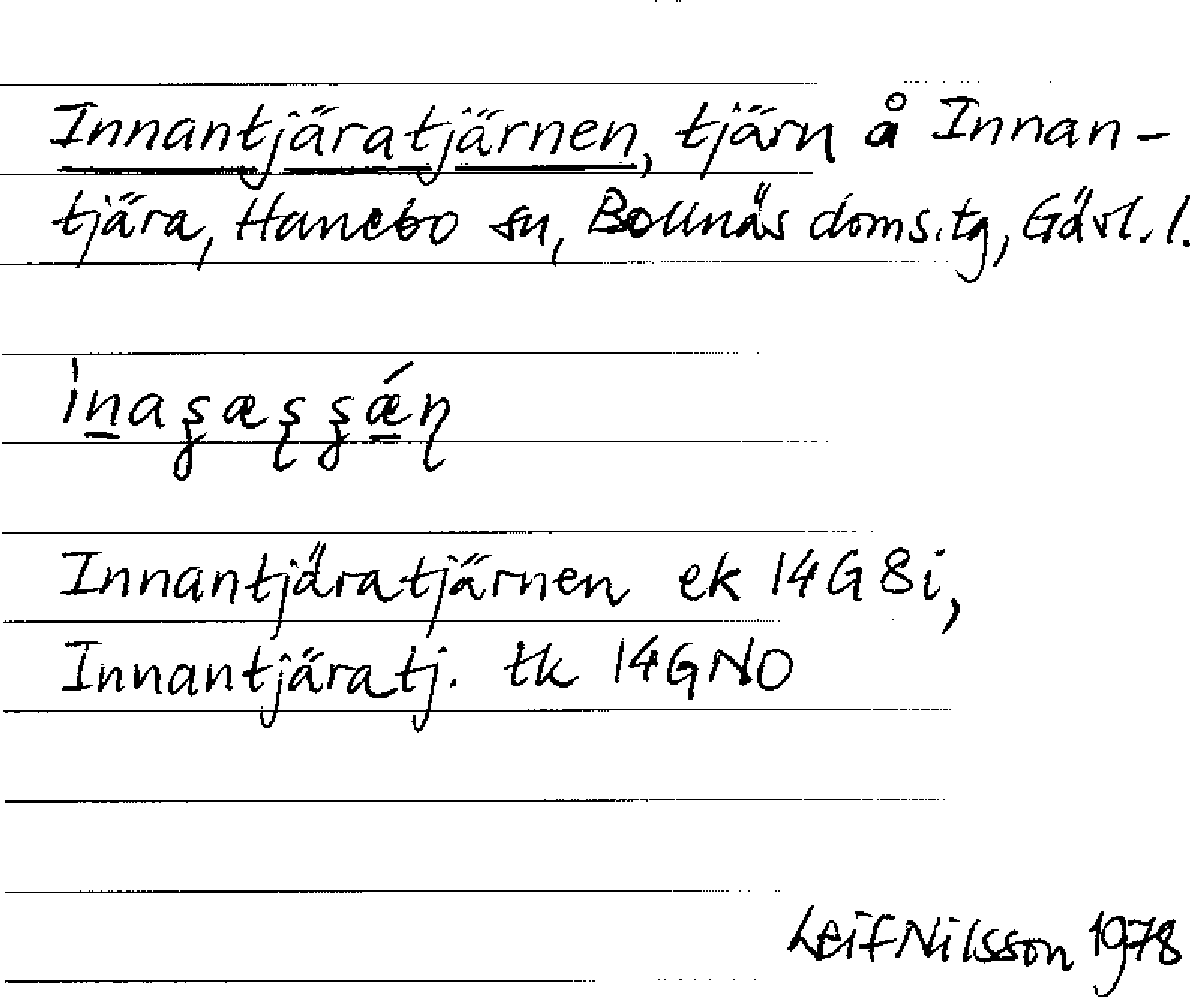 Innantjäratjärnen, tjärn å Innan-
tjära, Hanebo sn, Bollnäs doms.tg, Gävl. l.
Innantjäratjärnen ek 14G 8i,
Innantjäratj. tk 14G NO
Leif Nilsson 1978